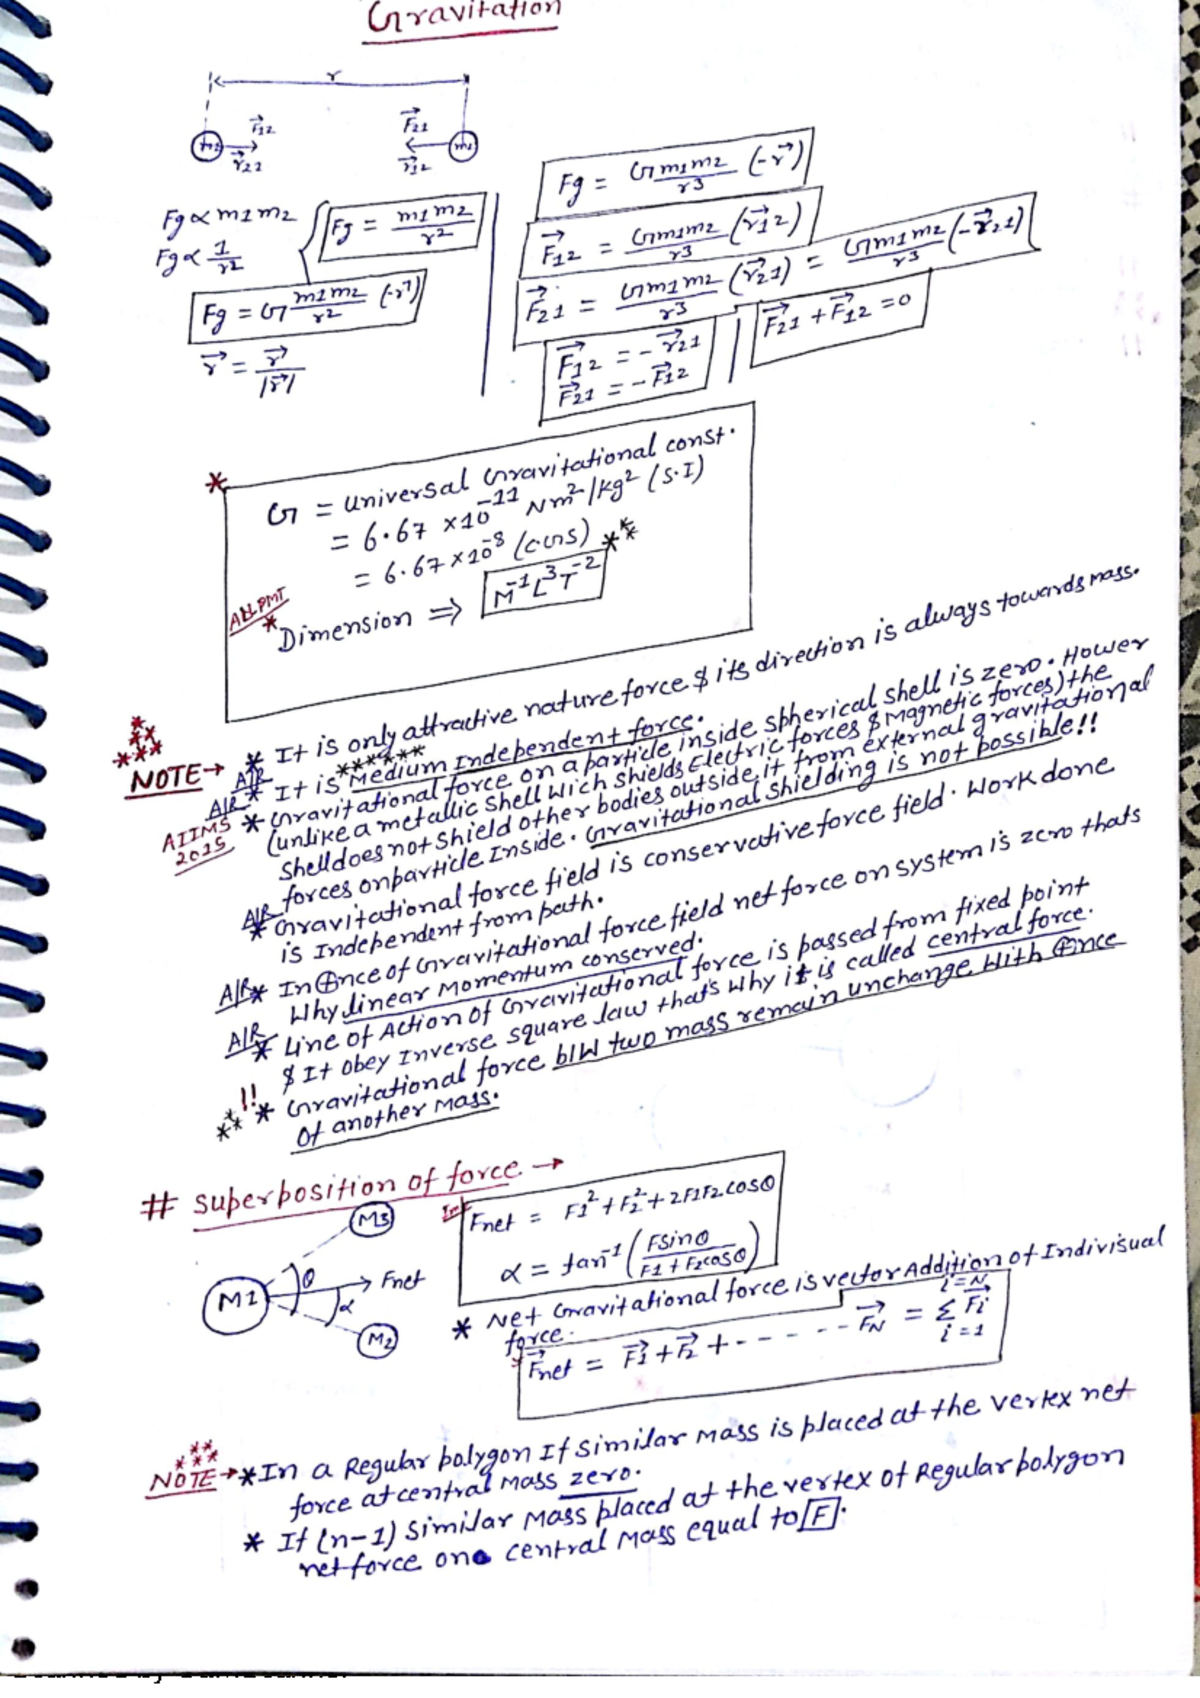 Gravitation
r
F12
r21
F21
r12
Fg ∝ m1m2
Fg ∝ 1/r2
Fg = m1m2/r2
Fg = G m1m2/r2 (-r→)
r→ = r→/|r→|
Fg = Gm1m2/r3 (-r→)
F→12 = Gm1m2/r3 (r→12)
F→21 = Gm1m2/r3 (r→21) = Gm1m2/r3 (-r→21)
F→12 = -r→21
F→21 = -F→12
F→21 + F→12 = 0
* G = universal Gravitational const.
= 6.67 x10^-11 Nm2/kg2 (S.I)
= 6.67 x10^-8 (CGS) ***
AIIPMT
* Dimension ⇒ M^-1 L^3 T^-2
NOTE → * It is only attractive nature force & its direction is always towards mass.
AIR * It is ****** Medium Independent force.
AIR * Gravitational force on a particle inside spherical shell is zero. Hower
AIIMS 2015 (unlike a metallic shell wich shields Electric forces & Magnetic forces) the
shell does not shield other bodies outside it from external gravitational
forces on particle Inside. Gravitational shielding is not possible!!
AIR * Gravitational force field is conservative force field. Work done
is Independent from path.
AIR * In ⊕nce of Gravitational force field net force on system is zero thats
Why linear Momentum conserved.
AIR * Line of Action of Gravitational force is passed from fixed point
& It obey Inverse square law that's why it is called central force.
!! * Gravitational force b/w two mass remain unchange With ⊕nce
Of another Mass.
# superposition of force →
M3
M1
M2
θ
α
Fnet
Fnet = F1^2 + F2^2 + 2F1F2cosθ
α = tan^-1 (Fsinθ/F1+F2cosθ)
* Net Gravitational force is vector Addition of Indivisual
force.
F→net = F→1 + F→2 + - - - - - - F→N = Σ i=1 i=N F→i
NOTE → * In a Regular polygon If similar Mass is placed at the vertex net
force at central Mass zero.
* If (n-1) similar Mass placed at the vertex of Regular polygon
net force on central Mass equal to F.